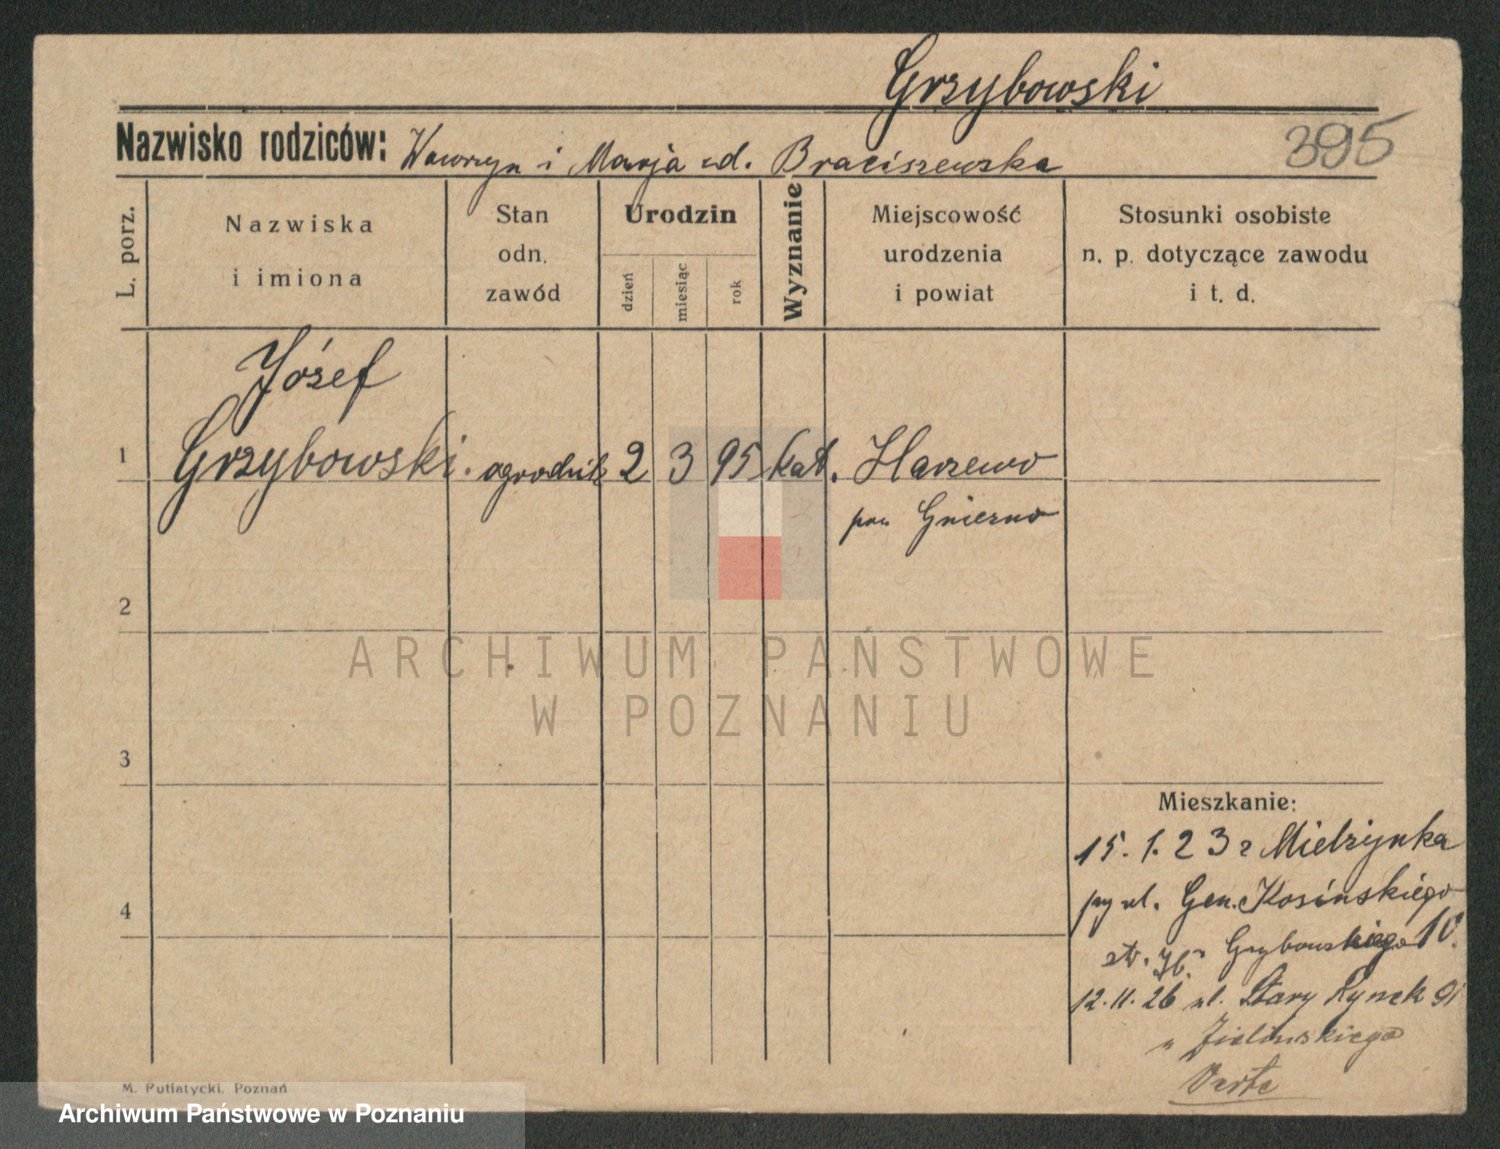 Grzybowski
395
Nazwisko rodziców: Wawrzyn i Marja zd. Braciszewska
L. porz.
Nazwiska i imiona
Stan odn. zawód
Urodzin
dzień
miesiąc
rok
Wyznanie
Miejscowość urodzenia i powiat
Stosunki osobiste n. p. dotyczące zawodu i t. d.
Józef
1 Grzybowski. ogrodnik 2 3 95 kat.
pow. Gniezno
2
3
4
ARCHIWUM PAŃSTWOWE
W POZNANIU
Mieszkanie:
15. 1. 23 z Mielżynka
przy ul. Gen. Kosińskiego
Grzybowskiego 10.
12. 11. 26 ul. Stary Rynek 91
" Zielinskiego
Verte
M. Putiatycki, Poznań
Archiwum Państwowe w Poznaniu